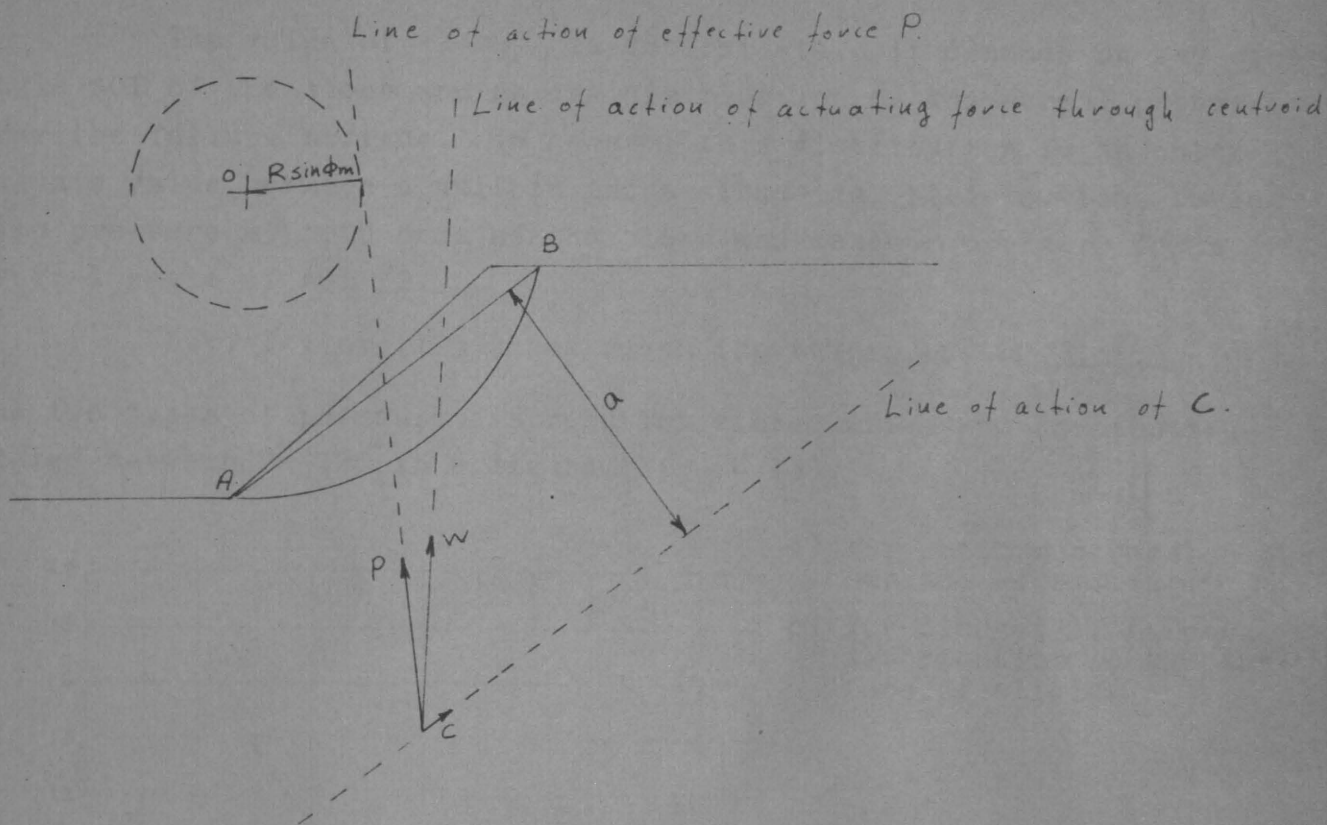 Line of action of effective force P.
Line of action of actuating force through centroid
O
R sin ϕm
B
a
Line of action of C.
A
W
P
C